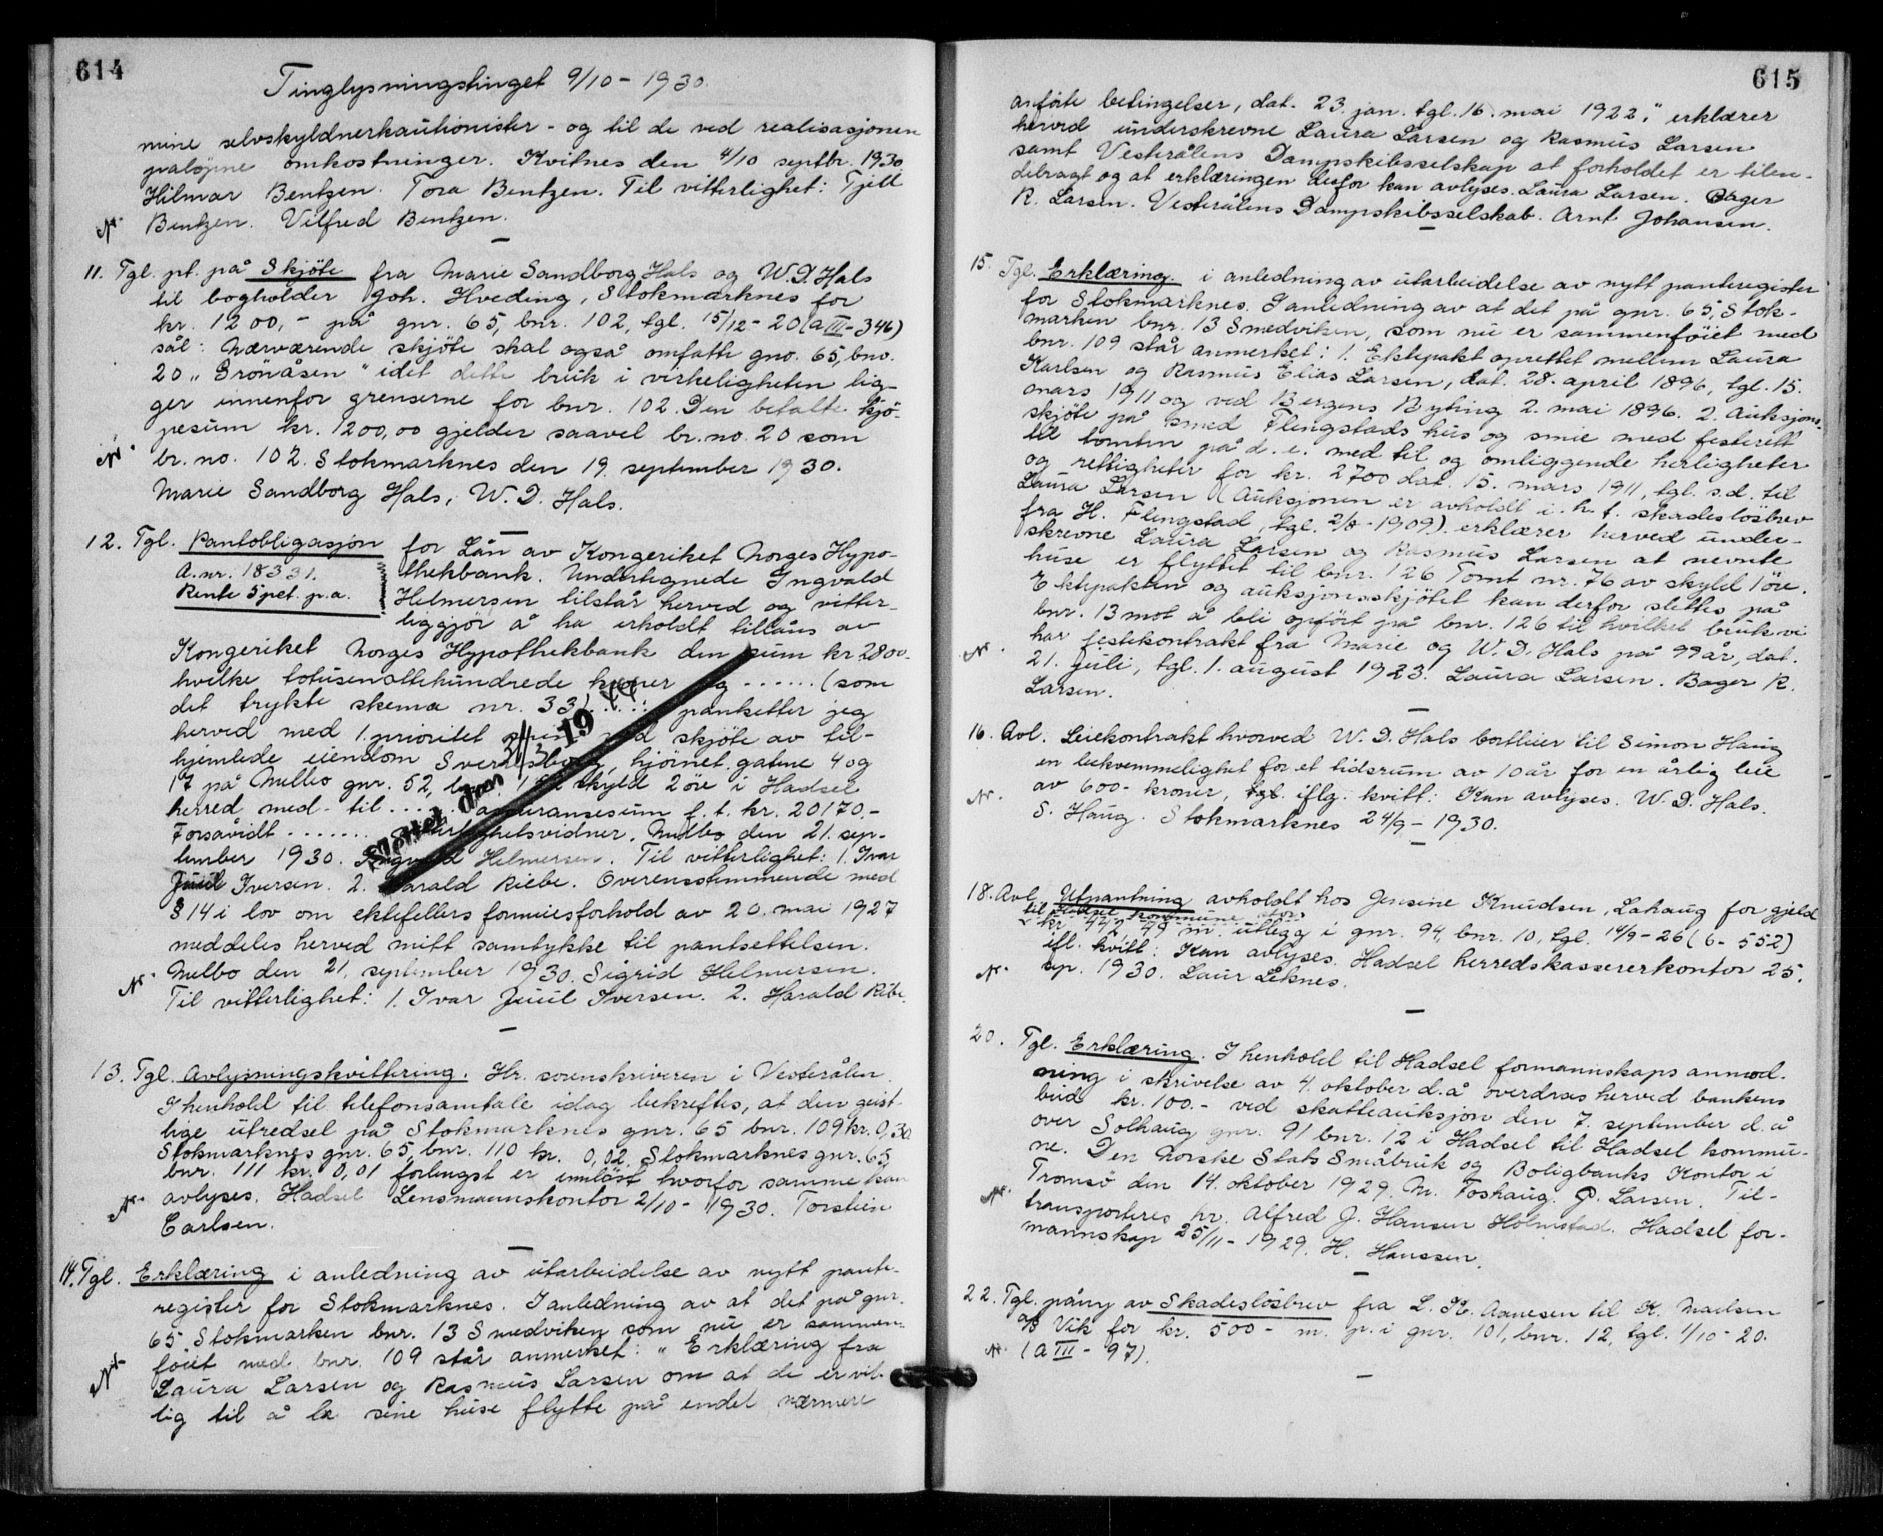 614
Tinglysningstinget 9/10 - 1930.
mine selvskyldnerkautionister - og til de ved realisasjonen
paløpne omkostninger. Kvitnes den 4/10 septbr. 1930
Hilmar Bentzen. Tora Bentzen. Til vitterlighet: Tjell
Bentzen. Vilfred Bentzen.
11. Tgl. pt. på Skjöte fra Marie Sandborg Hals og W. D. Hals
til bogholder Joh. Hveding, Stokmarknes for
kr. 1200,- på gnr. 65, bnr. 102, tgl. 15/12 - 20 (a III - 346)
sål: Nærværende skjöte skal også omfatte gno. 65, bno.
20 „Grönåsen" idet dette bruk i virkeligheten lig-
ger innenfor grenserne for bnr. 102. Den betalte kjö-
pesum kr. 1200,00 gjelder saavel br. no. 20 som
br. no. 102. Stokmarknes den 19. september 1930.
Marie Sandborg Hals, W. D. Hals.
12. Tgl. Pantobligasjon for Lån av Kongeriket Norges Hypo-
A. nr. 18331. thekbank. Undertegnede Ingvald
Rente 5 pct. p.a. Helmersen tilstår herved og vitter-
liggjör å ha erholdt tillåns av
Kongeriket Norges Hypothekbank den sum kr 2800.-
hvilke totusenottehundrede kroner og ...... (som
det trykte skema nr. 33) ..... pantsetter jeg
herved med 1. prioritet min ved skjöte av til-
hjemlede eiendom Sverdrsborg, hjörnet gatene 4 og
17 på Melbo gnr. 52, bnr. skyld 2 öre i Hadsel
herred med - til ..... assuransesum f. t. kr. 20170.-
Forsåvidt ....... vitterlighetsvidner. Melbo den 21. sep-
tember 1930. Ingvald Helmersen. Til vitterlighet: 1. Ivar
Juul Iversen. 2. Harald Riebe. Overensstemmende med
§ 14 i lov om ektefellers formuesforhold av 20. mai 1927
meddeles herved mitt samtykke til pantsettelsen.
Melbo den 21. september 1930. Sigrid Helmersen.
Til vitterlighet: 1. Ivar Juul Iversen. 2. Harald Ribe.
Slettet den 3/3 19
13. Tgl. Avlysningskvittering. Hr. sorenskriveren i Vesterålen.
I henhold til telefonsamtale idag bekreftes, at den geist-
lige utredsel på Stokmarknes gnr. 65 bnr. 109 kr. 0,30
Stokmarknes gnr. 65, bnr. 110 kr. 0,02. Stokmarknes gnr. 65
bnr. 111 kr. 0,01 forlengst er innlöst hvorfor samme kan
avlyses. Hadsel Lensmannskontor 2/10 - 1930. Torstein
Carlsen.
14. Tgl. Erklæring i anledning av utarbeidelse av nytt pante-
register for Stokmarknes. I anledning av at det på gnr.
65 Stokmarken bnr. 13 Smedviken som nu er sammen-
föiet med bnr. 109 står anmerket: „Erklæring fra
Laura Larsen og Rasmus Larsen om at de er vil-
lig til å la sine huse flytte på endel nærmere
615
anförte betingelser, dat. 23. jan. tgl. 16. mai 1922," erklærer
herved underskrevne Laura Larsen og Rasmus Larsen
samt Vesterålens Dampskibsselskap at forholdet er tilen-
debragt og at erklæringen derfor kan avlyses. Laura Larsen. Bager
R. Larsen. Vesterålens Dampskibsselskab. Arnt Johansen.
15. Tgl. Erklæring. i anledning av utarbeidelse av nytt panteregister
for Stokmarknes. I anledning av at det på gnr. 65, Stok-
marken bnr. 13 Smedviken, som nu er sammenföiet med
bnr. 109 står anmerket: 1. Ektepakt oprettet mellem Laura
Karlsen og Rasmus Elias Larsen, dat. 28. april 1896, tgl. 15.
mars 1911 og ved Bergens Byting 2. mai 1896. 2. Auksjons-
skjöte på smed Flengstads hus og smie med festerett
til tomten på d. e. med til og omliggende herligheter
og rettigheter for kr. 2700 dat. 15. mars 1911, tgl. s.d. til
Laura Larsen (Auksjonen er avholdt i h. t. skadeslösbrev
fra H. Flengstad, tgl. 2/8 - 1909). erklærer herved under-
skrevne Laura Larsen og Rasmus Larsen at nevnte
huse er flyttet til bnr. 126 Tomt nr. 76 av skyld 1 öre.
Ektepakten og auksjonsskjötet kan derfor slettes på
bnr. 13 mot å bli opfört på bnr. 126 til hvilket bruk vi
har festekontrakt fra Marie og W. D. Hals på 99 år, dat.
21. juli, tgl. 1. august 1923. Laura Larsen. Bager R.
Larsen.
16. Avl. Leiekontrakt hvorved W. D. Hals bortleier til Simon Haug
en bekvemmelighet for et tidsrum av 10 år for en årlig leie
av 600 - kroner, tgl. iflg. kvitt: Kan avlyses. W. D. Hals.
S. Haug. Stokmarknes 24/9 - 1930.
18. Avl. Utpantning avholdt hos Jensine Knudsen, Lahaug for gjeld
til Hadsel kommune stor
kr. 442,49 m. utlegg i gnr. 94, bnr. 10, tgl. 14/9 - 26 (6 - 552)
ifl. kvitt: Kan avlyses. Hadsel herredskassererkontor 25.
sep. 1930. Laur Leknes.
20. Tgl. Erklæring. I henhold til Hadsel formannskaps anmod-
ning i skrivelse av 4. oktober d.å overdras herved bankens
bud kr. 100.- ved skatteauksjon den 7. september d. å
over Solhaug gnr. 91 bnr. 12 i Hadsel til Hadsel kommu-
ne. Den Norske Stats Småbruk og Boligbanks Kontor i
Tromsö den 14. oktober 1929. M. Foshaug. P. Larsen. Til-
transporteres hr. Alfred J. Hansen Holmstad. Hadsel for-
mannskap 25/11 - 1929. H. Hanssen.
22. Tgl. påny av Skadeslösbrev fra L. Kr. Aanesen til K. Madsen
Vik for kr. 500 - m. p. i gnr. 101, bnr. 12, tgl. 1/10 - 20.
(a III - 97).